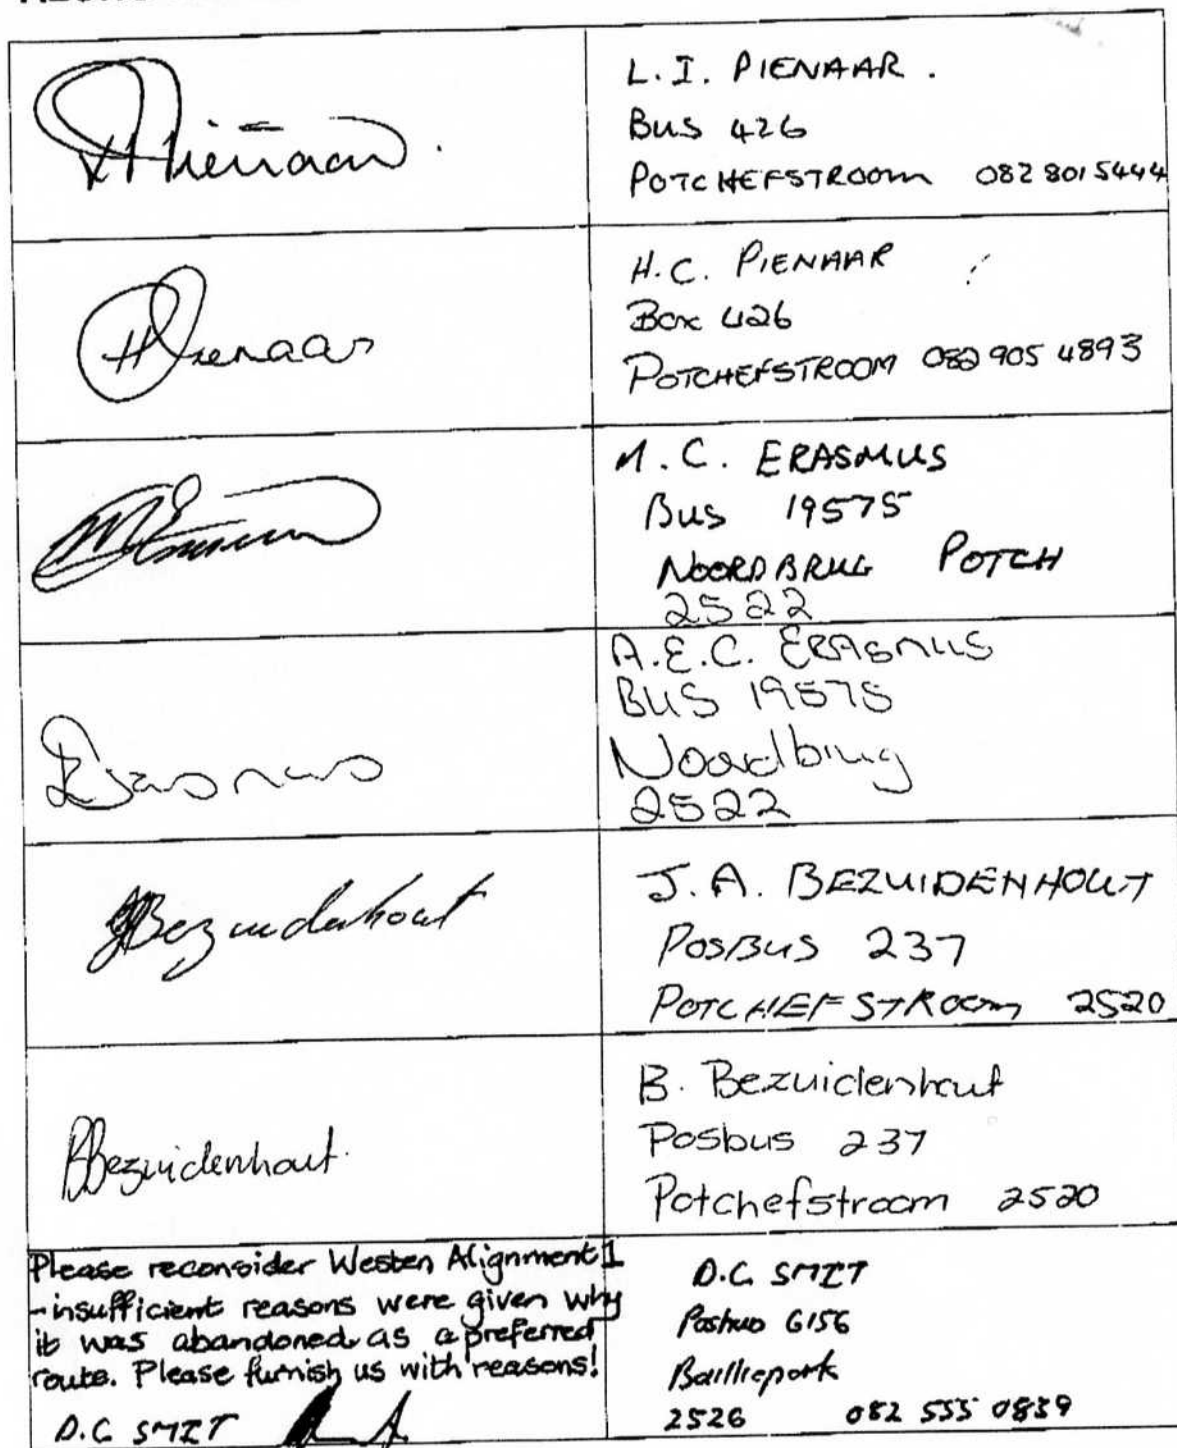 Pienaar.
L.I. PIENAAR.
BUS 426
POTCHEFSTROOM 082 801 5444
H Pienaar
H.C. PIENAAR
Box 426
POTCHEFSTROOM 082 905 4893
M.C. ERASMUS
BUS 19575
NOORDBRUG POTCH
2522
Erasmus
A.E.C. ERASMUS
BUS 19575
Noordbrug
2522
JABezuidenhout
J.A. BEZUIDENHOUT
POSBUS 237
POTCHEFSTROOM 2520
BBezuidenhout.
B. Bezuidenhout
Posbus 237
Potchefstroom 2520
Please reconsider Westen Alignment 1
-insufficient reasons were given why
it was abandoned as a preferred
route. Please furnish us with reasons!
D.C SMIT
D.C. SMIT
Posbus 6156
Bailliepark
2526 082 555 0839